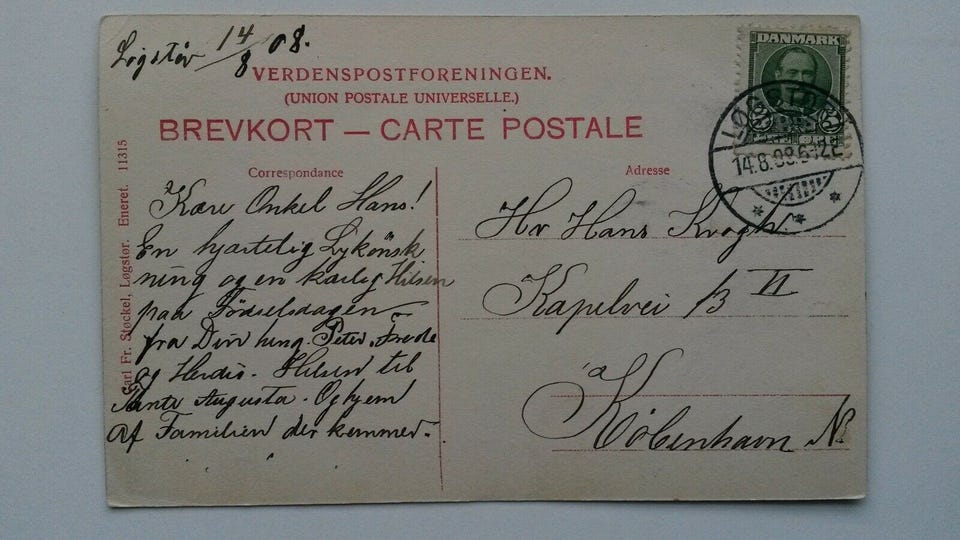 Løgstør 14/8 08.
VERDENSPOSTFORENINGEN.
(UNION POSTALE UNIVERSELLE.)
BREVKORT — CARTE POSTALE
Correspondance
Kære Onkel Hans!
En hjærtelig Lykönsk
ning og en kærlig Hilsen
paa Födselsdagen
fra Din
Peter, Frede
og Herdis. Hilsen til
Tante Augusta. Og hjem
Af Familien der kommer.
Carl Fr. Støckel, Løgstør. Eneret. 11315
Adresse
Hr Hans Krogh.
Kapelvei 13 VI
København N.
DANMARK
LØGSTØR
14.8.08.6-12E